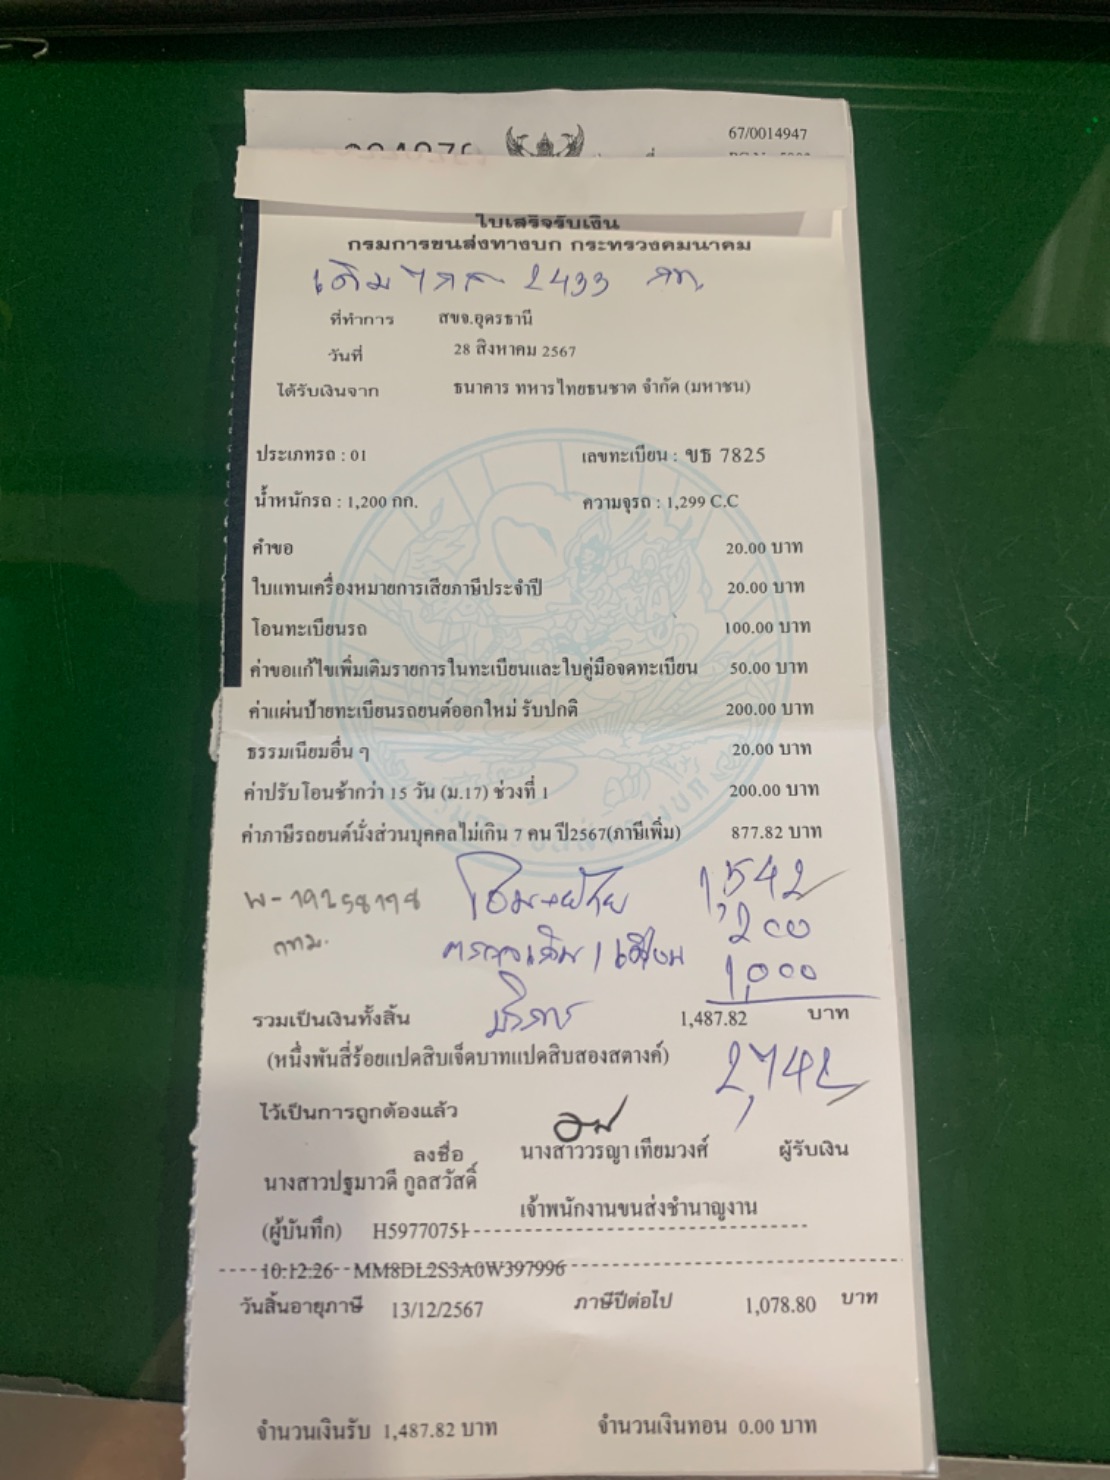 67/0014947
ใบเสร็จรับเงิน
กรมการขนส่งทางบก กระทรวงคมนาคม
เดิม 2433 กท.
ที่ทำการ สขจ.อุดรธานี
วันที่ 28 สิงหาคม 2567
ได้รับเงินจาก ธนาคาร ทหารไทยธนชาต จำกัด (มหาชน)
ประเภทรถ : 01 เลขทะเบียน : ขธ 7825
น้ำหนักรถ : 1,200 กก. ความจุรถ : 1,299 C.C
คำขอ 20.00 บาท
ใบแทนเครื่องหมายการเสียภาษีประจำปี 20.00 บาท
โอนทะเบียนรถ 100.00 บาท
ค่าขอแก้ไขเพิ่มเติมรายการในทะเบียนและใบคู่มือจดทะเบียน 50.00 บาท
ค่าแผ่นป้ายทะเบียนรถยนต์ออกใหม่ รับปกติ 200.00 บาท
ธรรมเนียมอื่น ๆ 20.00 บาท
ค่าปรับโอนช้ากว่า 15 วัน (ม.17) ช่วงที่ 1 200.00 บาท
ค่าภาษีรถยนต์นั่งส่วนบุคคลไม่เกิน 7 คน ปี2567(ภาษีเพิ่ม) 877.82 บาท
1,542
200
กทม.
1,000
บริการ
รวมเป็นเงินทั้งสิ้น 1,487.82 บาท
(หนึ่งพันสี่ร้อยแปดสิบเจ็ดบาทแปดสิบสองสตางค์)
2,742
ไว้เป็นการถูกต้องแล้ว
ลงชื่อ นางสาววรญา เทียมวงศ์ ผู้รับเงิน
นางสาวปฐมาวดี กูลสวัสดิ์
เจ้าพนักงานขนส่งชำนาญงาน
(ผู้บันทึก) H59770751
10:12:26 MM8DL2S3A0W397996
วันสิ้นอายุภาษี 13/12/2567 ภาษีปีต่อไป 1,078.80 บาท
จำนวนเงินรับ 1,487.82 บาท จำนวนเงินทอน 0.00 บาท